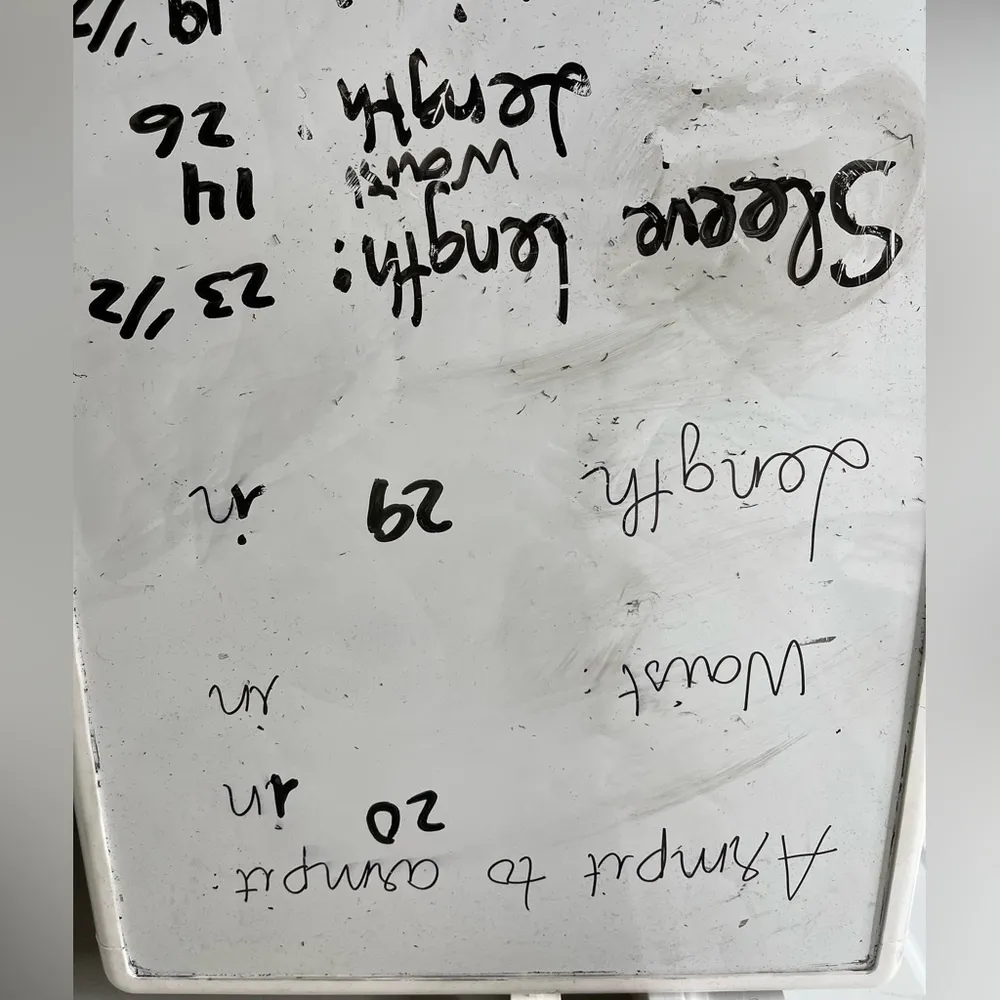 Armpit to armpit:
20 in
Waist: in
Length 29 in
Sleeve Length: 23 1/2
Waist 14
Length: 26
19 1/2